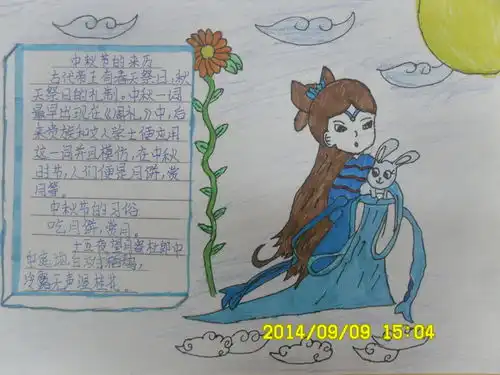 中秋节的来历
古代帝王有春天祭日,秋
天祭月的礼制。中秋一词
最早出现在《周礼》中,后
来贵族和文人学士便应用
这一词并且模仿,在中秋
时节,人们便是月饼,赏
月等。
中秋节的习俗
吃月饼,赏月。
十五夜望月
中庭地白
冷露无声湿桂花
2014/09/09 15:04